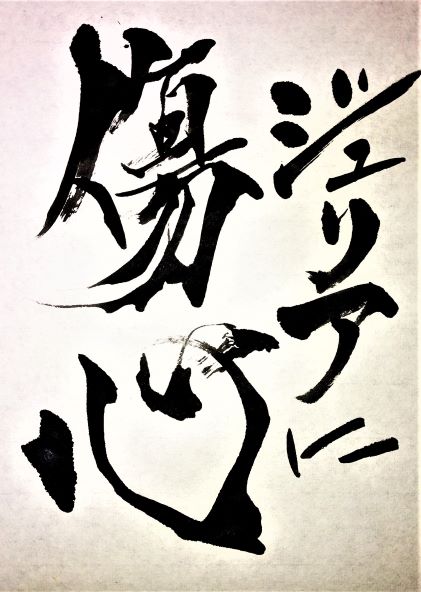 ジュリアに
傷心